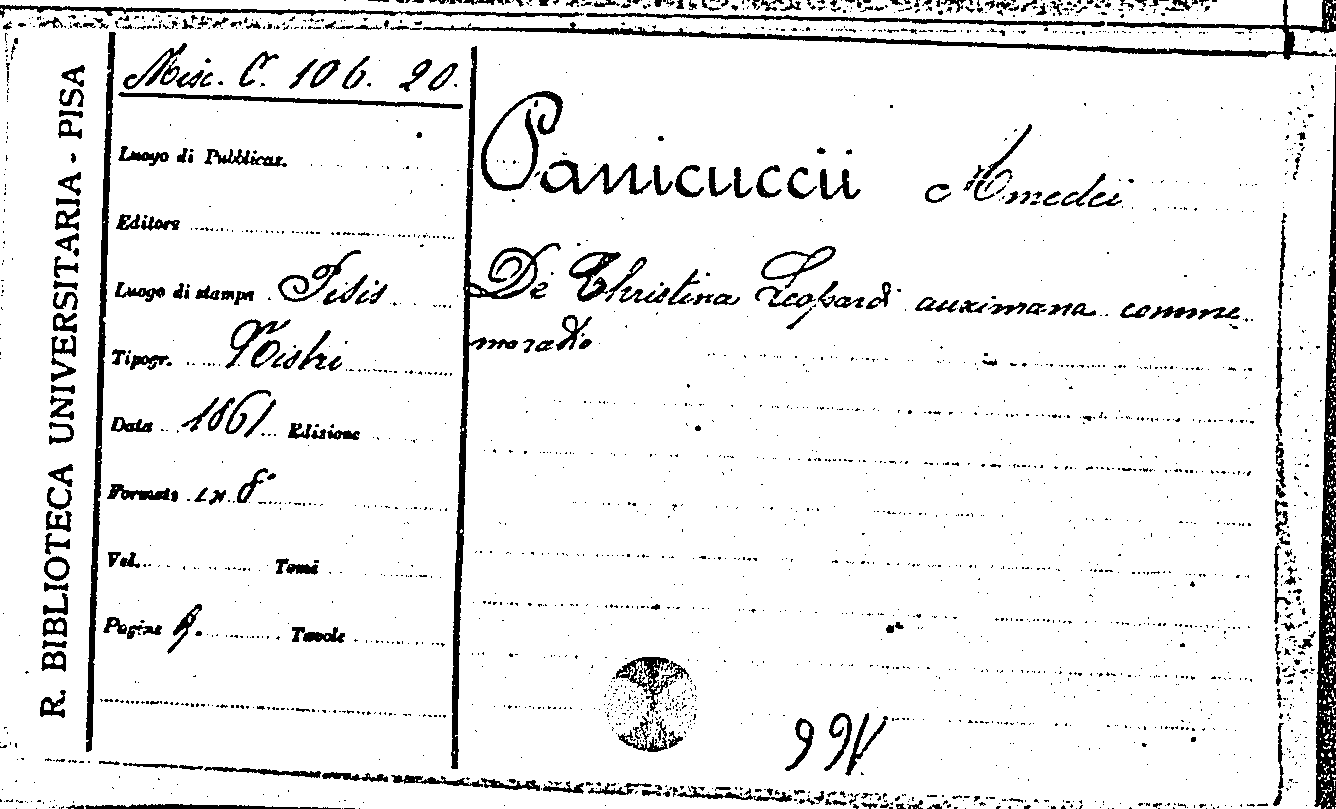 R. BIBLIOTECA UNIVERSITARIA - PISA
Misc. C. 106. 20.
Luogo di Pubblicaz.
Editore
Luogo di stampa Pisis
Tipogr. Nistri
Data 1861 Edizione
Formato in 8°
Vol. Tomi
Pagine Tavole
Panicuccii Amedei
De Christina Leopardi auximana comme
moratio